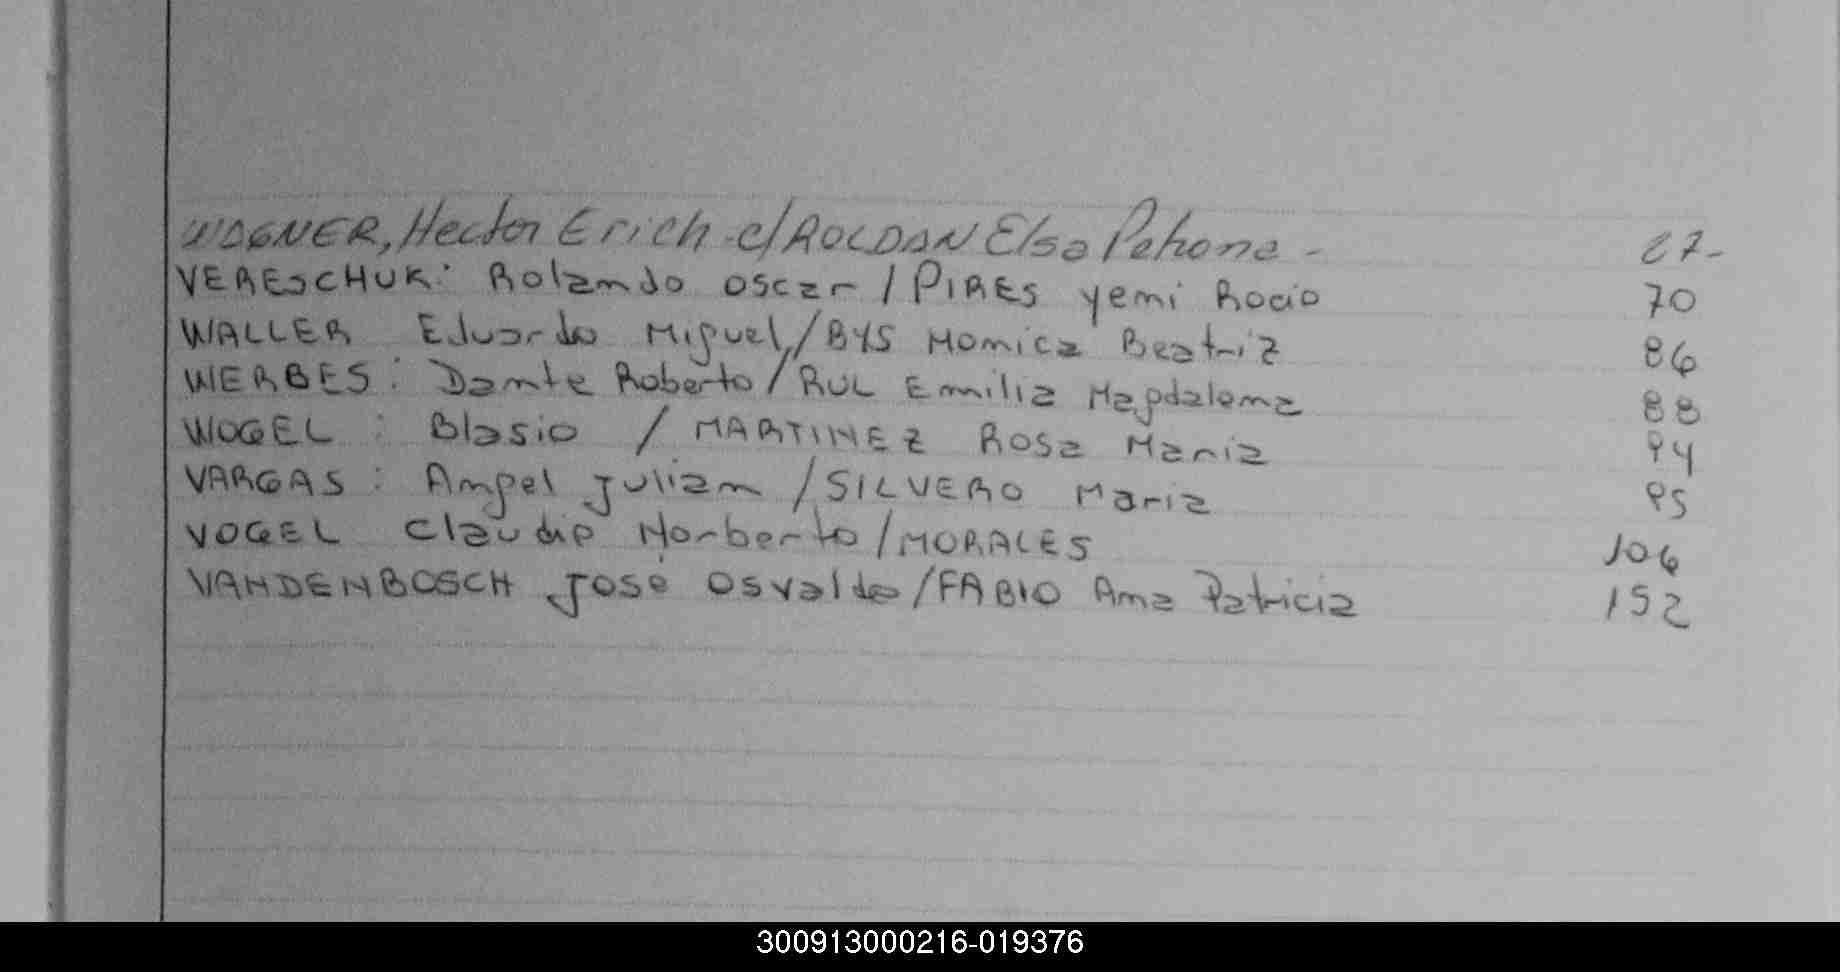 WAGNER, Hector Erich - c/ ROLDAN Elsa Petrona - 27-
VERESCHUK: Rolando Oscar / PIRES Yemi Rocio 70
WALLER Eduardo Miguel / BYS Monica Beatriz 86
WERBES: Dante Roberto / RUL Emilia Magdalena 88
WOGEL : Blasio / MARTINEZ Rosa Maria 94
VARGAS : Angel Julian / SILVERO Maria 95
VOGEL Claudio Norberto / MORALES 106
VANDENBOSCH José Osvaldo / FABIO Ana Patricia 152
300913000216-019376